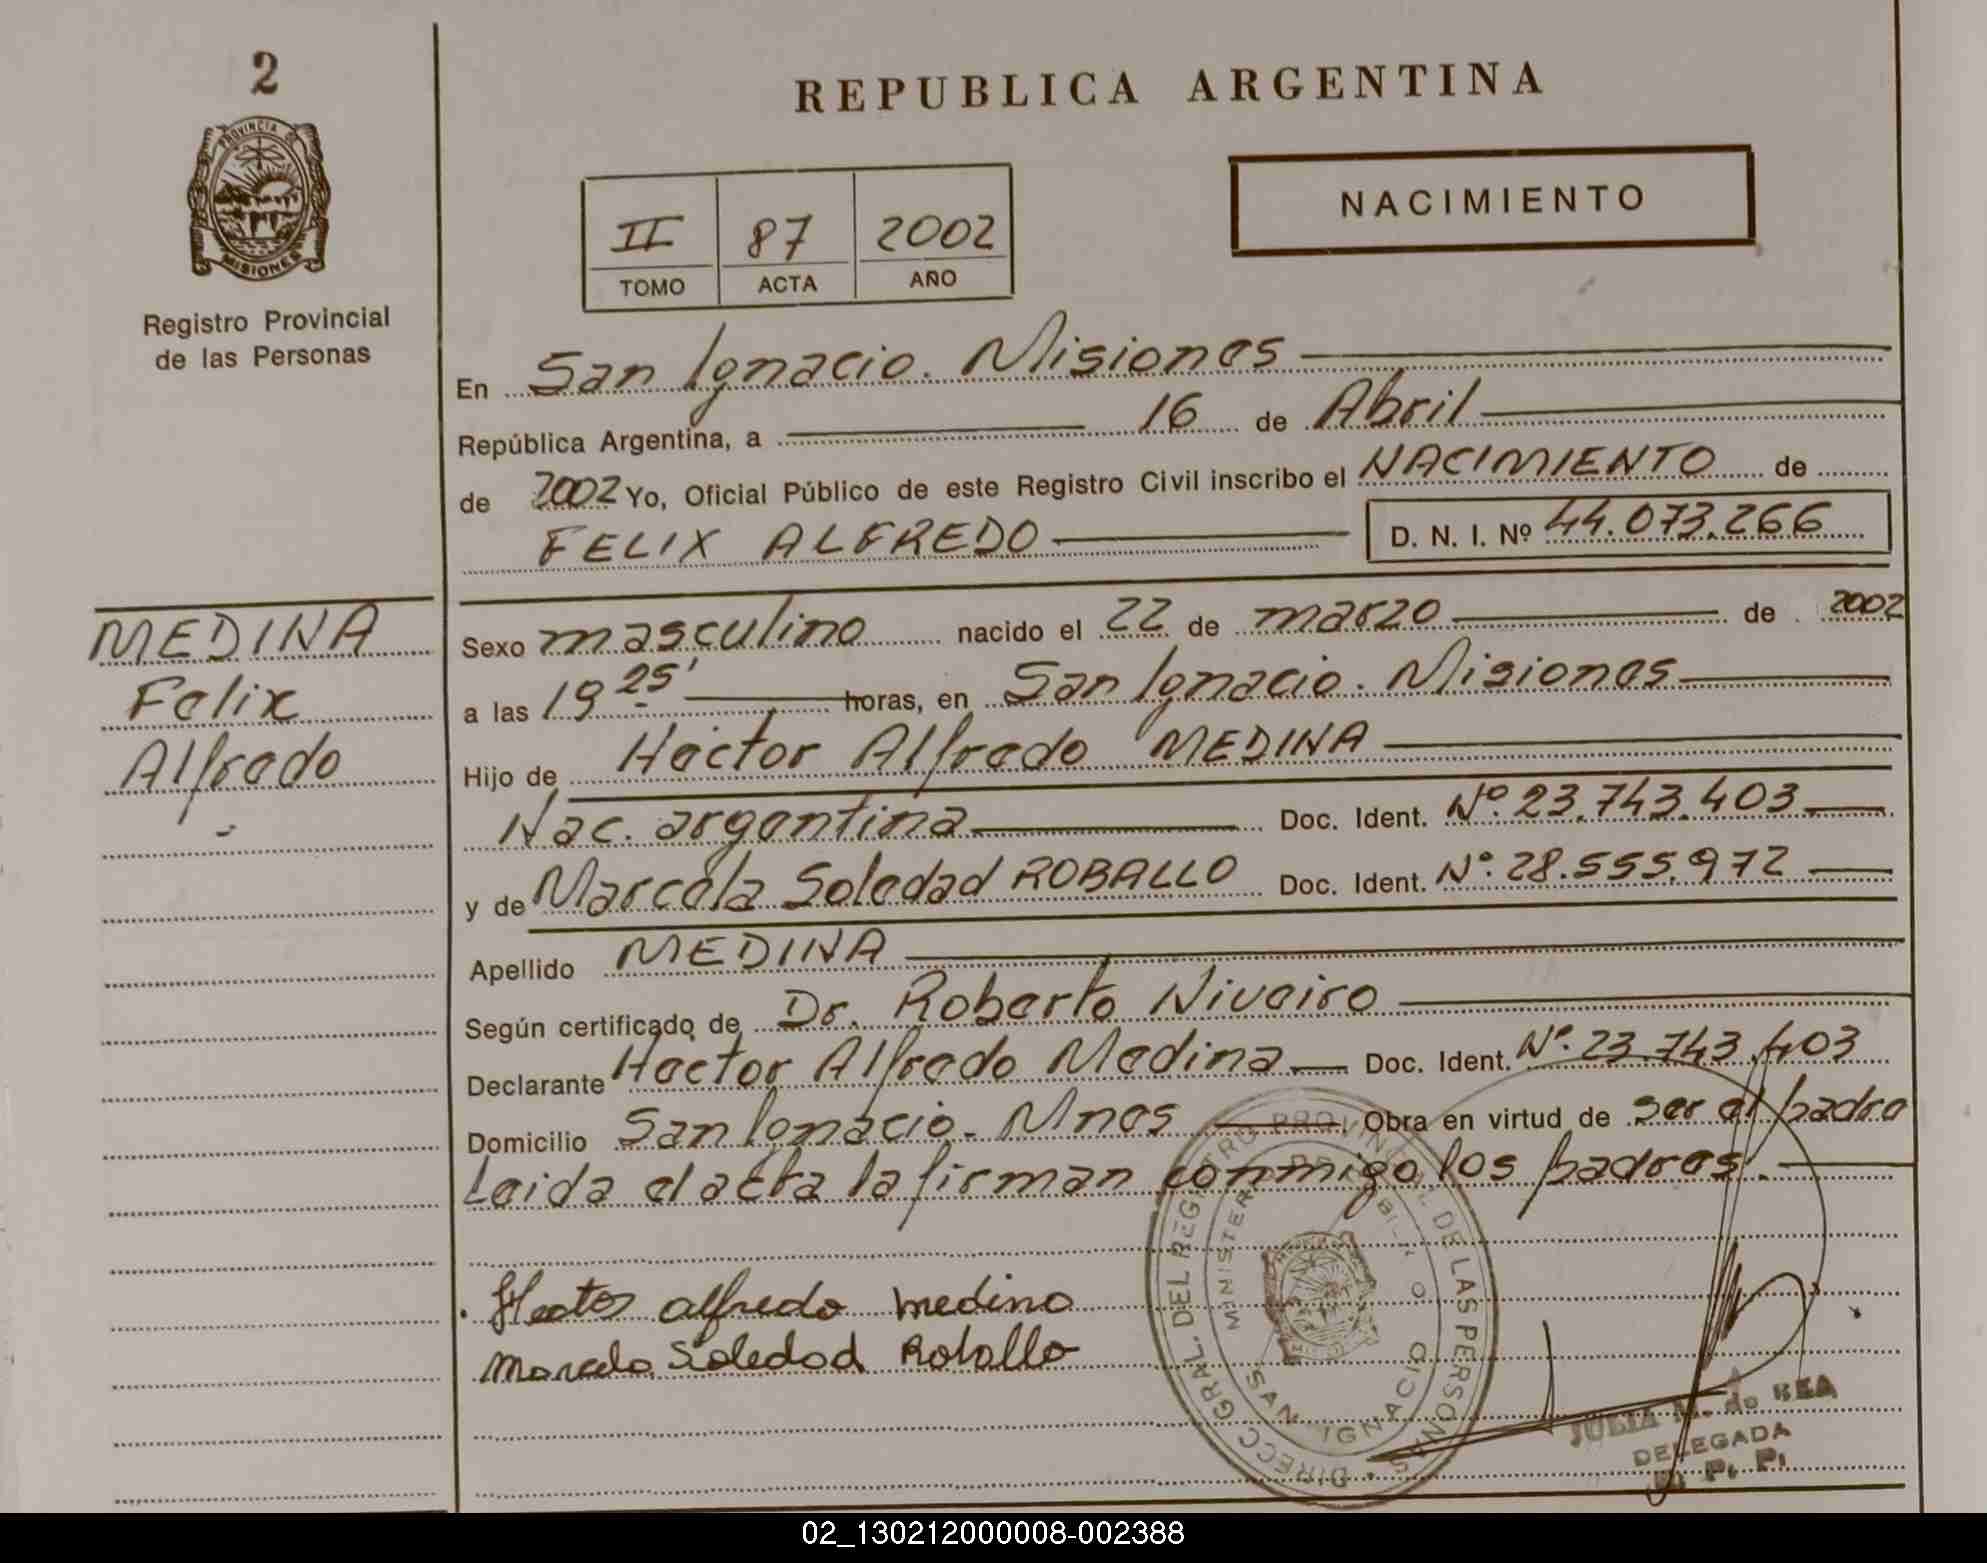 2
PROVINCIA DE
MISIONES
Registro Provincial
de las Personas
REPUBLICA ARGENTINA
NACIMIENTO
II 87 2002
TOMO ACTA AÑO
En San Ignacio. Misiones
República Argentina, a 16 de Abril
de 2002 Yo, Oficial Público de este Registro Civil inscribo el NACIMIENTO de
FELIX ALFREDO D. N. I. Nº 44.073.266
MEDINA
Felix
Alfredo
Sexo masculino nacido el 22 de marzo de 2002
a las 19 25' horas, en San Ignacio. Misiones
Hijo de Hector Alfredo MEDINA
Nac. argentina Doc. Ident. Nº 23.743.403
y de Marcela Soledad ROBALLO Doc. Ident. Nº 28.555.972
Apellido MEDINA
Según certificado de Dr. Roberto Niveiro
Declarante Hector Alfredo Medina Doc. Ident. Nº 23.743.403
Domicilio San Ignacio. Mnes Obra en virtud de ser el padre
Leida el acta la firman conmigo los padres.
Hector alfredo medina
Marcela Soledad Roballo
DIRECC GRAL. DEL REGISTRO PROVINCIAL DE LAS PERSONAS
SAN IGNACIO
JULIA M. de REA
DELEGADA
R. P. P.
02_130212000008-002388